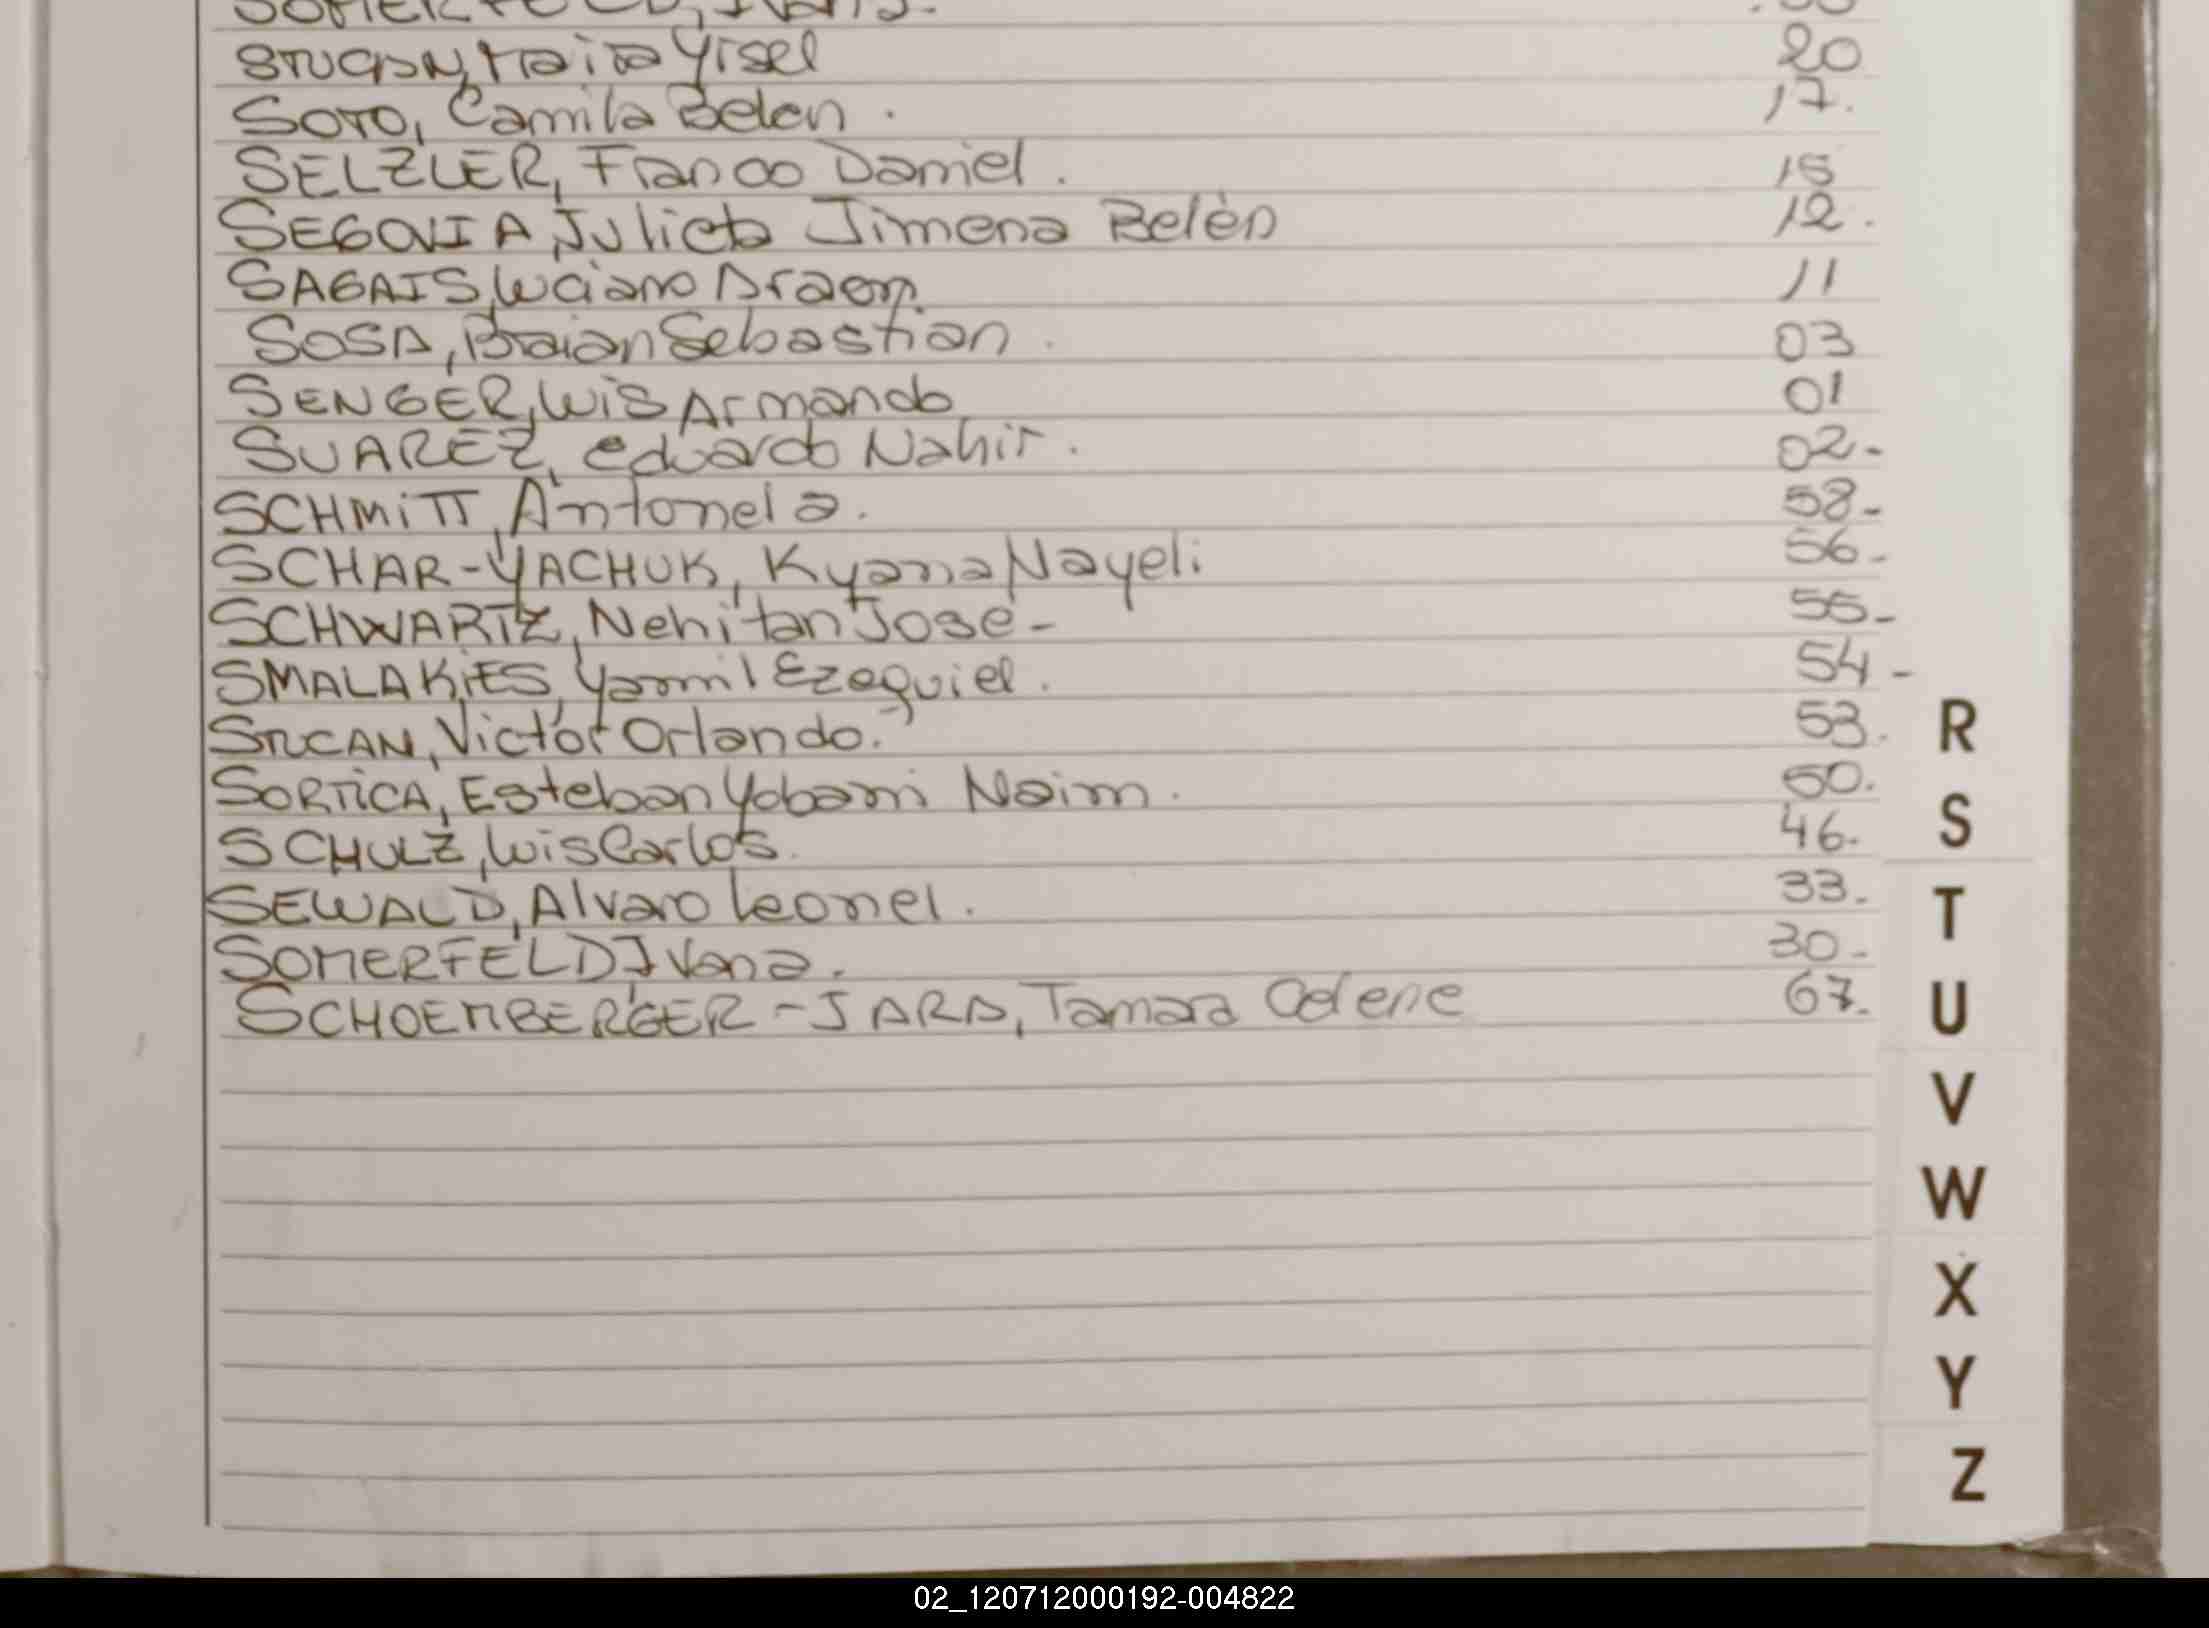 SOMERFELD, Ivana.
STUCAN, Maira Yisel 20
SOTO, Camila Belen. 17.
SELZLER, Franco Daniel. 15
SEGOVIA, Julieta Jimena Belén 12.
SAGAIS, Luciano 11
SOSA, Braian Sebastian. 03
SENGER, Luis Armando 01
SUAREZ, eduardo Nahir. 02-
SCHMiTT, Antonela. 58-
SCHAR-YACHUK, Kyana Nayeli 56-
SCHWARTZ, Nehitan José- 55-
SMALAKiES, Yamil Ezequiel. 54-
STUCAN, Victor Orlando. 53.
SORTiCA, Esteban Yobani Naim. 50.
SCHULZ, Luis Carlos. 46.
SEWALD, Alvaro Leonel. 33.
SOMERFELD, Ivana. 30-
SCHOEMBERGER-JARA, Tamara Celene 67.
R
S
T
U
V
W
X
Y
Z
02_120712000192-004822